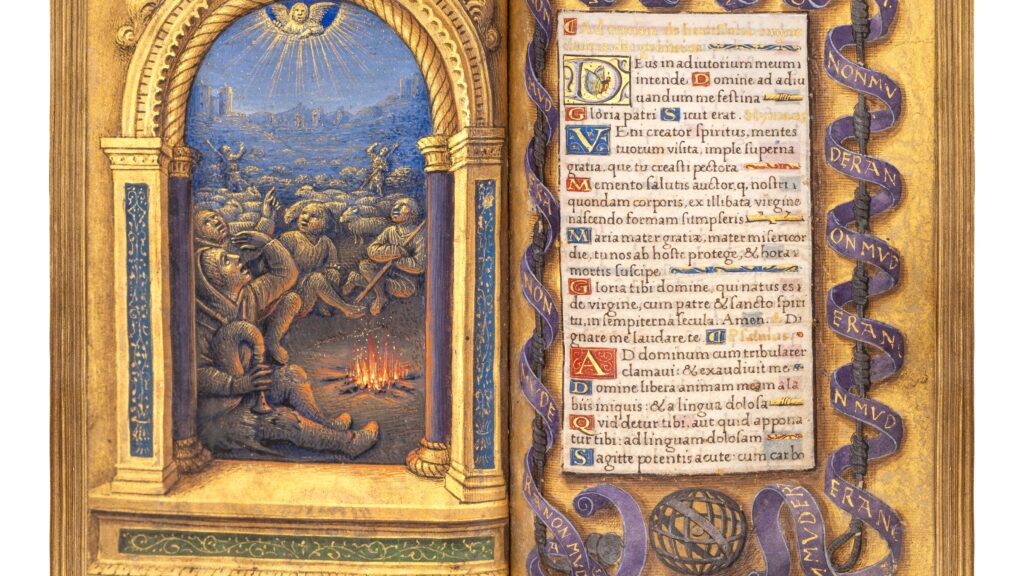 Deus in adiutorium meum
intende. Domine ad adiu
uandum me festina
Gloria patri Sicut erat.
Veni creator spiritus, mentes
tuorum visita, imple superna
gratia, que tu creasti pectora
Memento salutis auctor, q, nostri
quondam corporis, ex illibata virgine
nascendo formam sumpseris
Maria mater gratiæ, mater misericor
die, tu nos ab hoste protege, & hora
mortis suscipe
Gloria tibi domine, qui natus es
de virgine, cum patre & sancto spiri
tu, in sempiterna secula. Amen. Di
gnare me laudare te.
AD dominum cum tribularer
clamaui: & exaudiuit me
Domine libera animam meam a la
biis iniquis: & a lingua dolosa
Quid detur tibi, aut quid appona
tur tibi: ad linguam dolosam
Sagitte potentis acute: cum carbo
NON
DE
R NON MVD
NON MV
DERAN
ON MVD
ERAN
N MVD
ERAN
MVDER